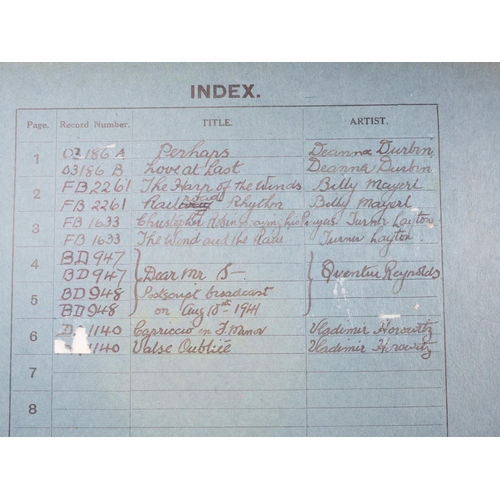 INDEX.
Page. Record Number. TITLE. ARTIST.
1 03186 A Perhaps Deanna Durbin
03186 B Love at Last Deanna Durbin
2 FB 2261 The Harp of the Winds Billy Mayerl
FB 2261 Railroad Rhythm Billy Mayerl
3 FB 1633 Christopher Robin is saying his Turner Layton
FB 1633 The Wind and the Turner Layton.
4 BD 947
BD 947 Dear Mr B— Quentin Reynolds
5 BD 948 Postscript broadcast
BD 948 on Aug 10th 1941
6 1140 Capriccio in F. Minor Vladimir Horowitz
1140 Valse Oubliée Vladimir Horowitz
7
8